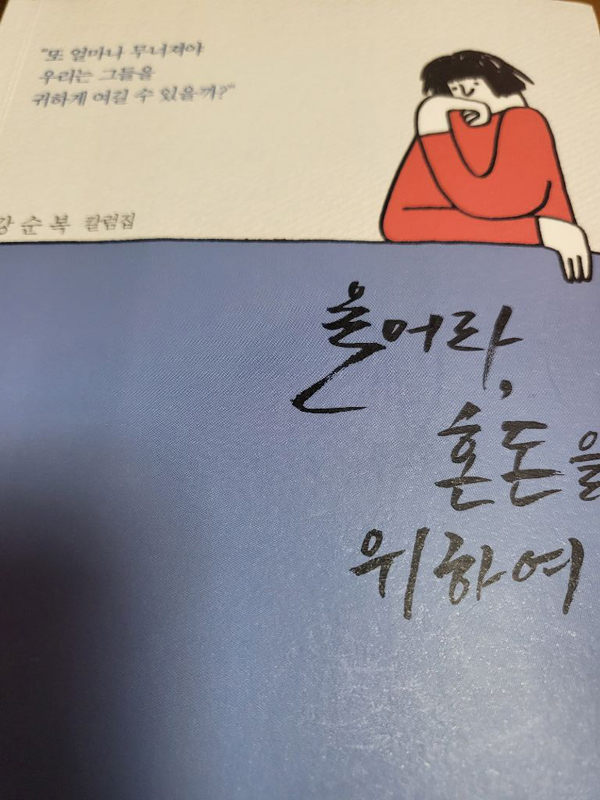 "또 얼마나 무너져야
우리는 그들을
귀하게 여길 수 있을까?"
강순복 칼럼집
울어라,
혼돈을
위하여